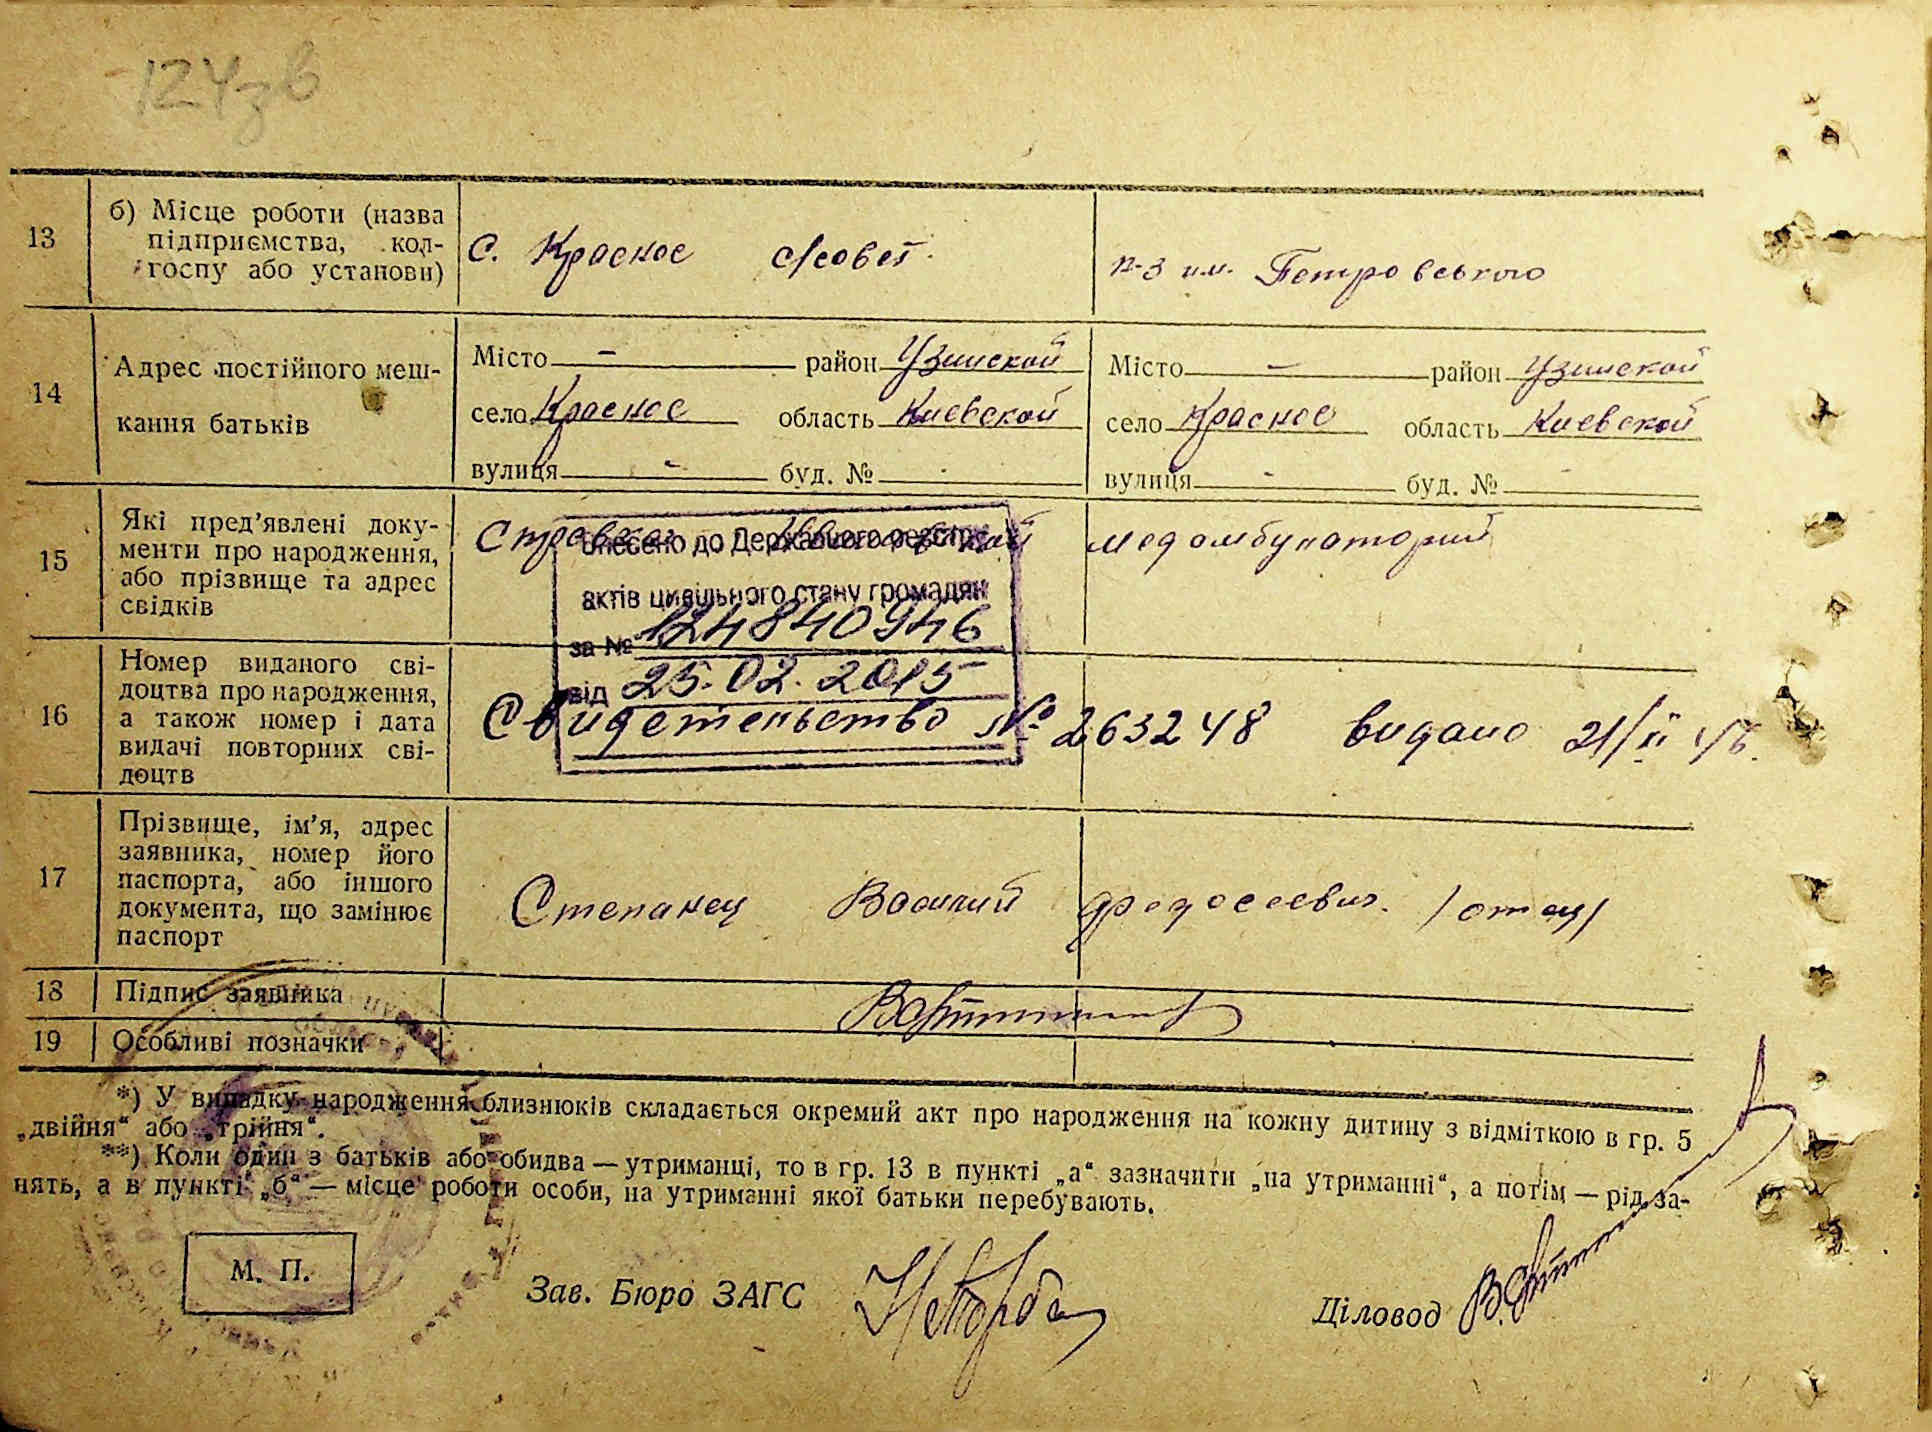 124зв
13
б) Місце роботи (назва
підприємства, кол-
госпу або установи)
с. Красное с/совет
к-з им. Петровського
14
Адрес постійного меш-
кання батьків
Місто — район Узинской
село Красное область Киевской
вулиця - буд. №
Місто — район Узинской
село Красное область Киевской
вулиця - буд. №
15
Які пред'явлені доку-
менти про народження,
або прізвище та адрес
свідків
Справка
Внесено до Державного реєстру
актів цивільного стану громадян
за № 124840946
від 25.02.2015
16
Номер виданого сві-
доцтва про народження,
а також номер і дата
видачі повторних сві-
доцтв
Свидетельство № 263248 видано 21/II 46.
17
Прізвище, ім'я, адрес
заявника, номер його
паспорта, або іншого
документа, що замінює
паспорт
Степанец Василий Федосеевич. /отец/
18
Підпис заявника
19
Особливі позначки
*) У випадку народження близнюків складається окремий акт про народження на кожну дитину з відміткою в гр. 5
„двійня“ або „трійня“.
**) Коли один з батьків або обидва — утриманці, то в гр. 13 в пункті „а“ зазначити „на утриманні“, а потім — рід за-
нять, а в пункті „б“ — місце роботи особи, на утриманні якої батьки перебувають.
М. П.
Зав. Бюро ЗАГС
Діловод